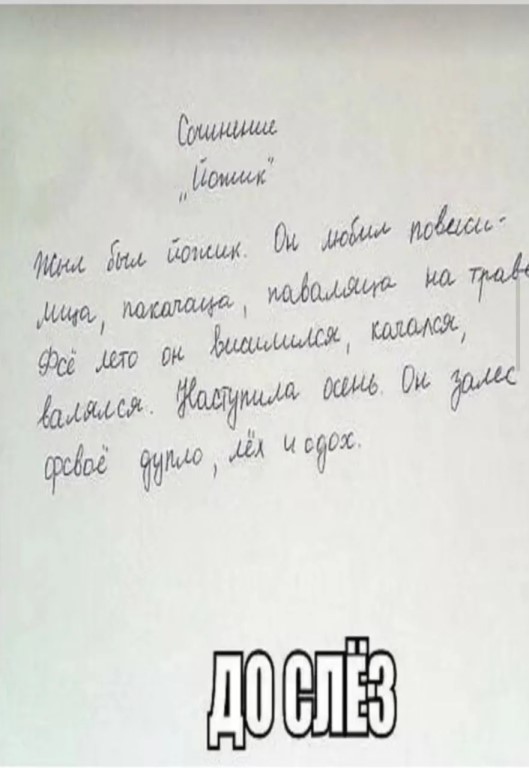 Сочинение
„Йожик"
Жыл был йожик. Он любил повиси-
лица, пакачаца, паваляца на траве
Фсё лето он висилился, качался,
валялся. Наступила осень. Он залес
фсваё дупло, лёх и сдох.
ДО СЛЁЗ